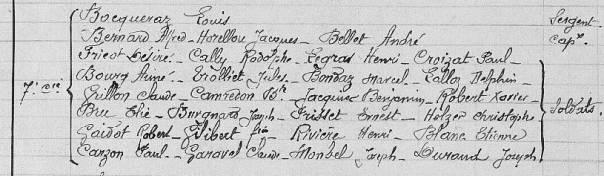 Bocqueraz Louis Sergent
Bernard Alfred _ Horellou Jacques _ Bellet André cap.
Fricot Désiré _ Cally Rodolphe _ Legras Henri _ Croizat Paul _
7e Cie Bourg Aimé _ Trolliet Jules _ Bondaz Marcel _ Lallon Delphin _
Grillon Claude _ Camredon Bte _ Jacquier Benjamin _ Robert Xavier _
Bue Elie _ Burgnard Joseph _ Frisset Ernest _ Holzer Christophe Soldats.
Gaidot Robert _ Gilibert _ Rivière Henri _ Blanc Etienne
Carzon Paul _ Garavel Claude _ Monbel Joseph _ Durand Joseph